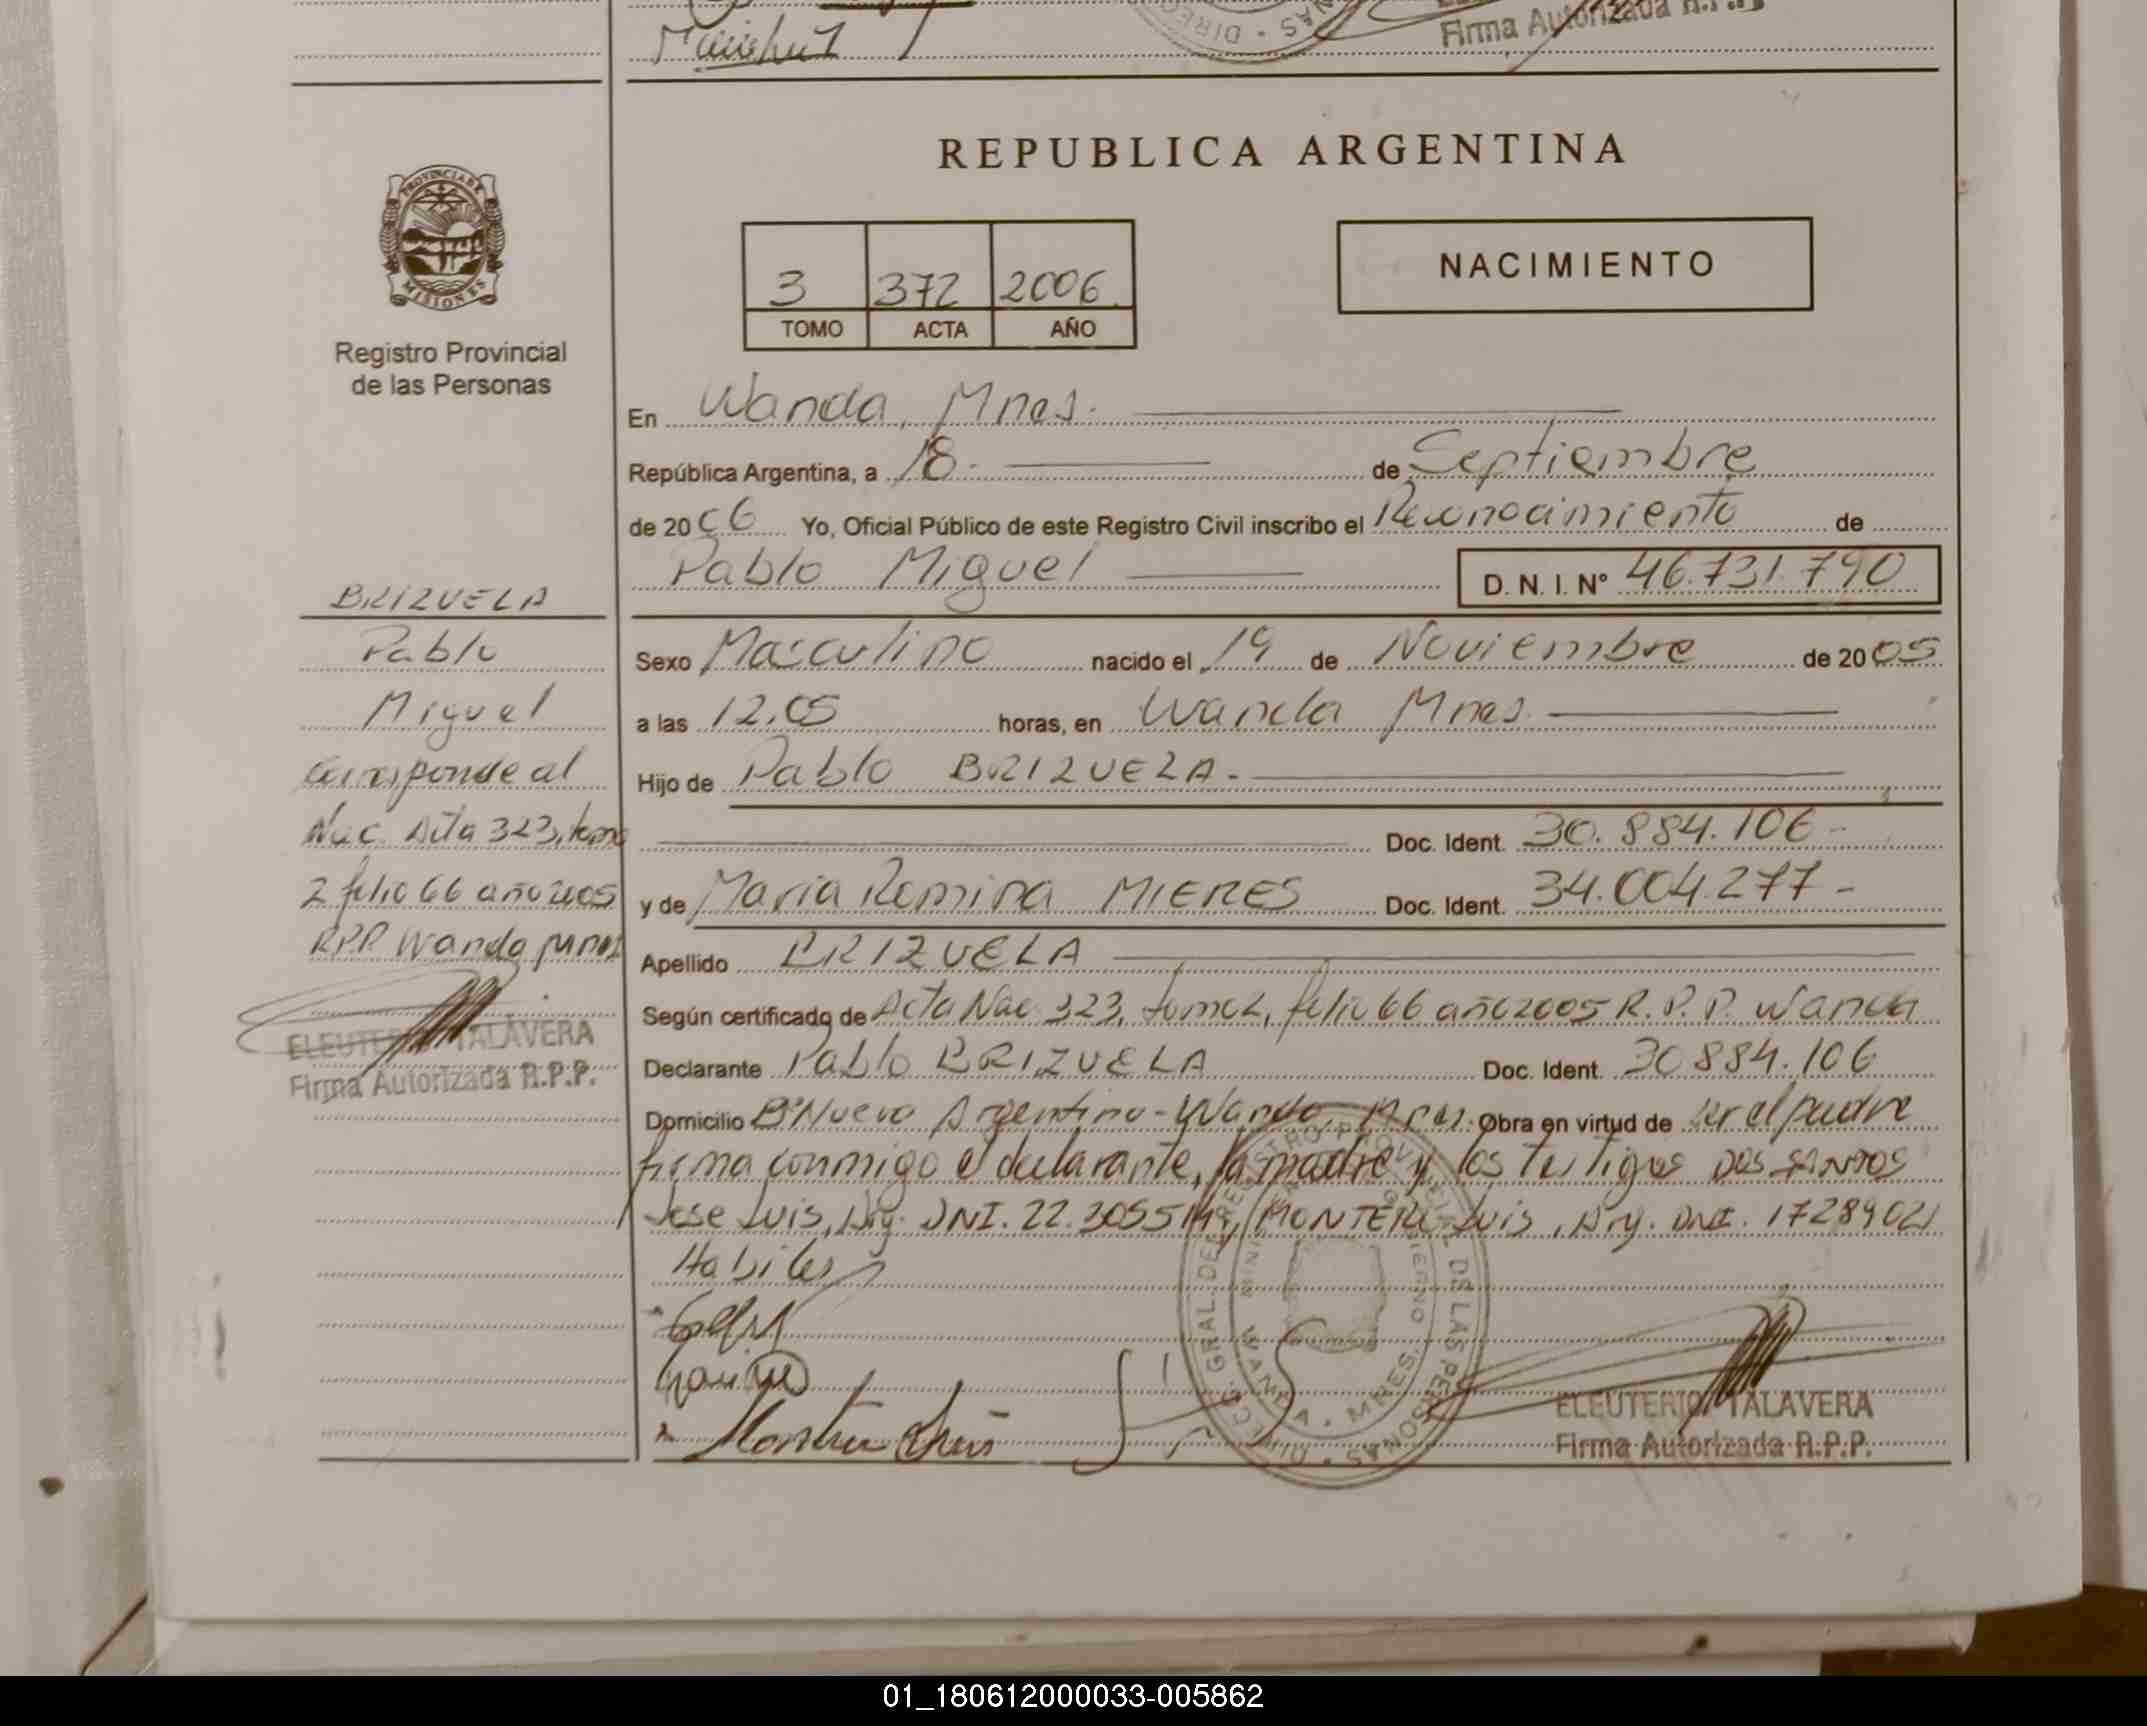 DIREC · NAS
Firma Autorizada R.P.P.
REPUBLICA ARGENTINA
PROVINCIA DE
MISIONES
Registro Provincial
de las Personas
3 372 2006
TOMO ACTA AÑO
NACIMIENTO
En Wanda, Mnes.
República Argentina, a 18. de Septiembre
de 2006 Yo, Oficial Público de este Registro Civil inscribo el Reconocimiento de
Pablo Miguel D. N. I. Nº 46.731.790
BRIZUELA
Pablo
Miguel
Corresponde al
Nac. Acta 323, tomo
2 folio 66 año 2005
RPP Wanda Mnes
ELEUTERIO TALAVERA
Firma Autorizada R.P.P.
Sexo Masculino nacido el 19 de Noviembre de 2005
a las 12,05 horas, en Wanda Mnes.
Hijo de Pablo BRIZUELA.
Doc. Ident. 30.884.106-
y de Maria Romina MIERES Doc. Ident. 34.004.277-
Apellido BRIZUELA
Según certificado de Acta Nac 323, tomo 2, folio 66 año 2005 R.P.P. Wanda
Declarante Pablo BRIZUELA Doc. Ident. 30884.106
Domicilio Bº Nuevo Argentino-Wanda, Mnes. Obra en virtud de ser el padre
firma conmigo el declarante, la madre y los testigos DOS SANTOS
Jose Luis, Arg. DNI. 22.305514, MONTERO Luis, Arg. DNI. 17289021
Habiles
DIRECC. GRAL. DEL REGISTRO PROVINCIAL DE LAS PERSONAS
WANDA · MNES.
ELEUTERIO TALAVERA
Firma Autorizada R.P.P.
01_180612000033-005862